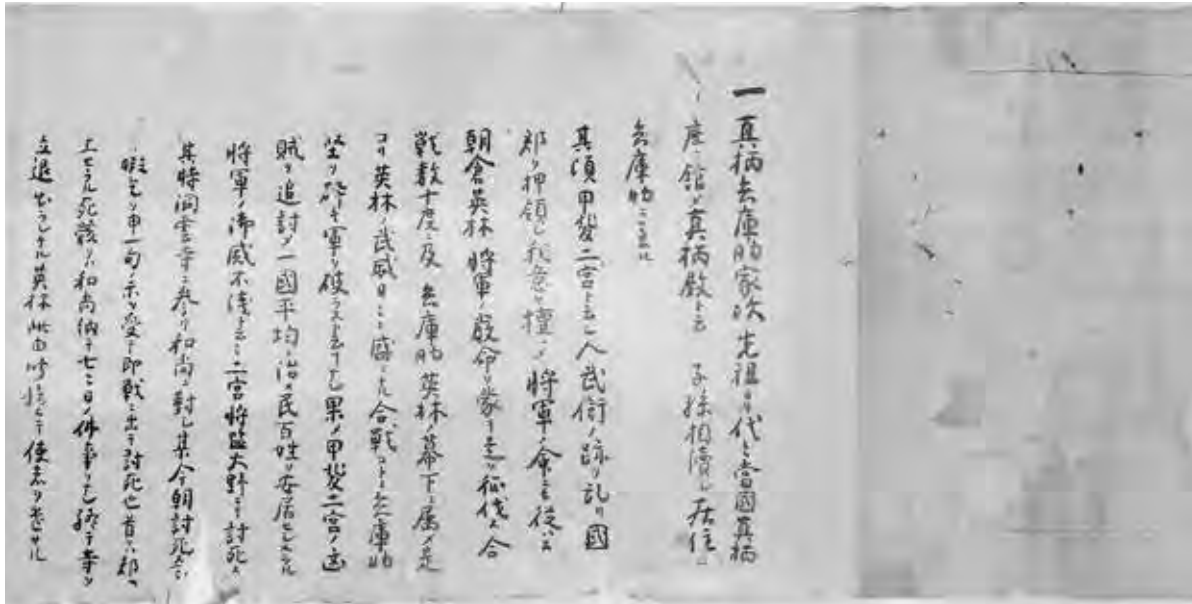 一真柄兵庫助家次先祖ヨリ代々當國真柄
庄ニ舘メ真柄殿ト云 子孫相續シ居住ス
兵庫助ニ至ル
其頃甲斐二宮ト云シ人武衛ノ跡ヲ乱リ國
郡ヲ押領シ我意ヲ擅ニメ将軍ノ命ニモ従ハス
朝倉英林 将軍ノ嚴命ヲ蒙テ是ヲ征伐ス合
戦数十度ニ及 兵庫助英林ノ幕下ニ属メ是
ヨリ英林ノ武威日ニ盛ニナル合戦コトニ兵庫助
堅ヲ砕キ軍ヲ破ラスト云コトナシ果メ甲斐二宮ノ凶
賊ヲ追討メ一國平均ニ治メ民百姓ヲ安居セシムル
将軍ノ御威不浅ト云 二宮将監大野ニテ討死ス
其時洞雲寺ニ参リ和尚ニ對シ某今朝討死
暇乞ヲ申一句ノ示ヲ受テ即戦ニ出テ討死也首ハ都ヘ
上セラル死骸ハ和尚納テ七々日ノ佛事ヲナシ終テ寺ヲ
立退 英林此由 使者ヲ